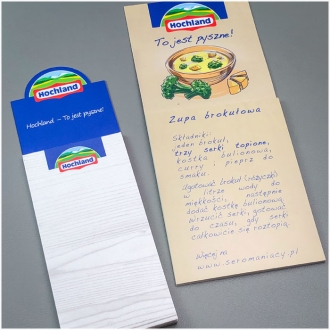 Hochland
Hochland – To jest pyszne!
Hochland
Hochland
To jest pyszne!
Zupa brokułowa
Składniki:
jeden brokuł,
trzy serki topione,
kostka bulionowa,
curry i pieprz do
smaku.
Ugotować brokuł (różyczki)
w litrze wody do
miękkości, następnie
dodać kostkę bulionową,
wrzucić serki, gotować
do czasu, gdy serki
całkowicie się roztopią.
więcej na
www.seromaniacy.pl